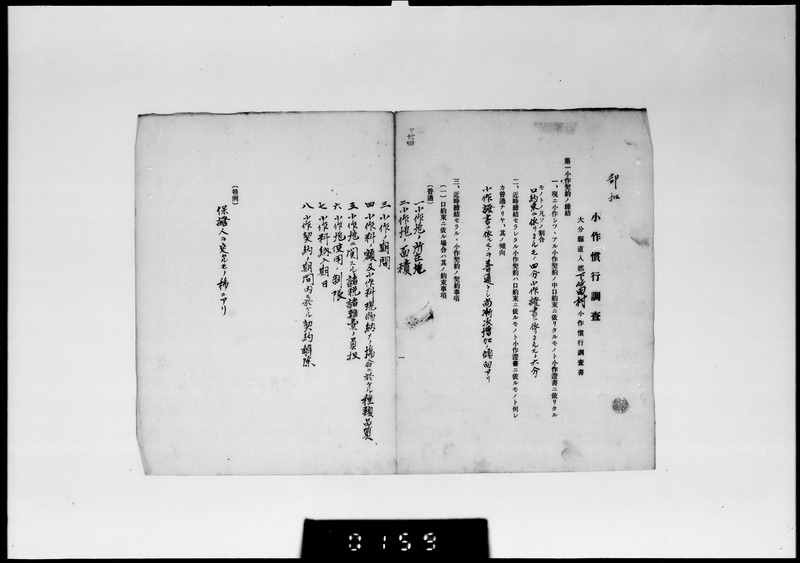 小作慣行調査
大分縣直入郡下竹田村小作慣行調査書
第一 小作契約ノ締結
一、現ニ小作シツヽアル小作契約ノ中口約束ニ依リタルモノト小作證書ニ依リタル
モノトノ凡ソノ割合
口約束ニ依リタルモノ四分小作證書ニ依リタルモノ六分
二、近時締結セラレタル小作契約ハ口約束ニ依ルモノト小作證書ニ依ルモノト何レ
カ普通ナリヤ、其ノ傾向
小作證書ニ依ルモノヲ普通トシ尚漸次増加ノ傾向アリ
三、近時締結セラルヽ小作契約ノ契約事項
(一) 口約束ニ依ル場合ハ其ノ約束事項
(普通)
一 小作地ノ所在地
二 小作地ノ面積
下竹田
一
三 小作ノ期間
四 小作料額及小作料現物納ナル場合ニ於ケル種類品質
五 小作地ニ関スル諸税諸雑費ノ負担
六 小作地使用ノ制限
七 小作料納入期日
八 小作契約ノ期間内ニ於ケル契約解除
(特例)
保證人ヲ定ムルモノ稀ニアリ
0159